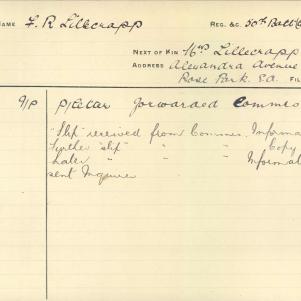 NAME F. R Lillecrapp REG. &C. 50th Battn
NEXT OF KIN Mrs Lillecrapp
ADDRESS Alexandra Avenue
Rose Park. S.A. FIL
P/Ctar forwarded Commes
"Slip" received from Commes. Informa
Further "slip" " " Copy
Later " " " Informat
sent Inquirer